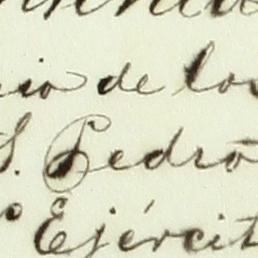 io de los
S. Pedro
o Ejércit